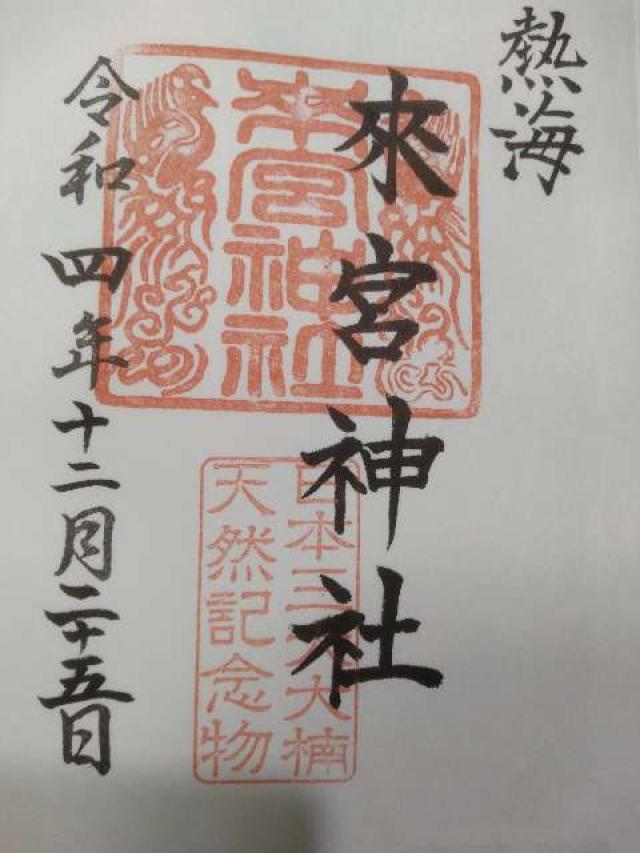 熱海
來宮神社
來宮神社
日本三大大楠
天然記念物
令和四年十二月二十五日